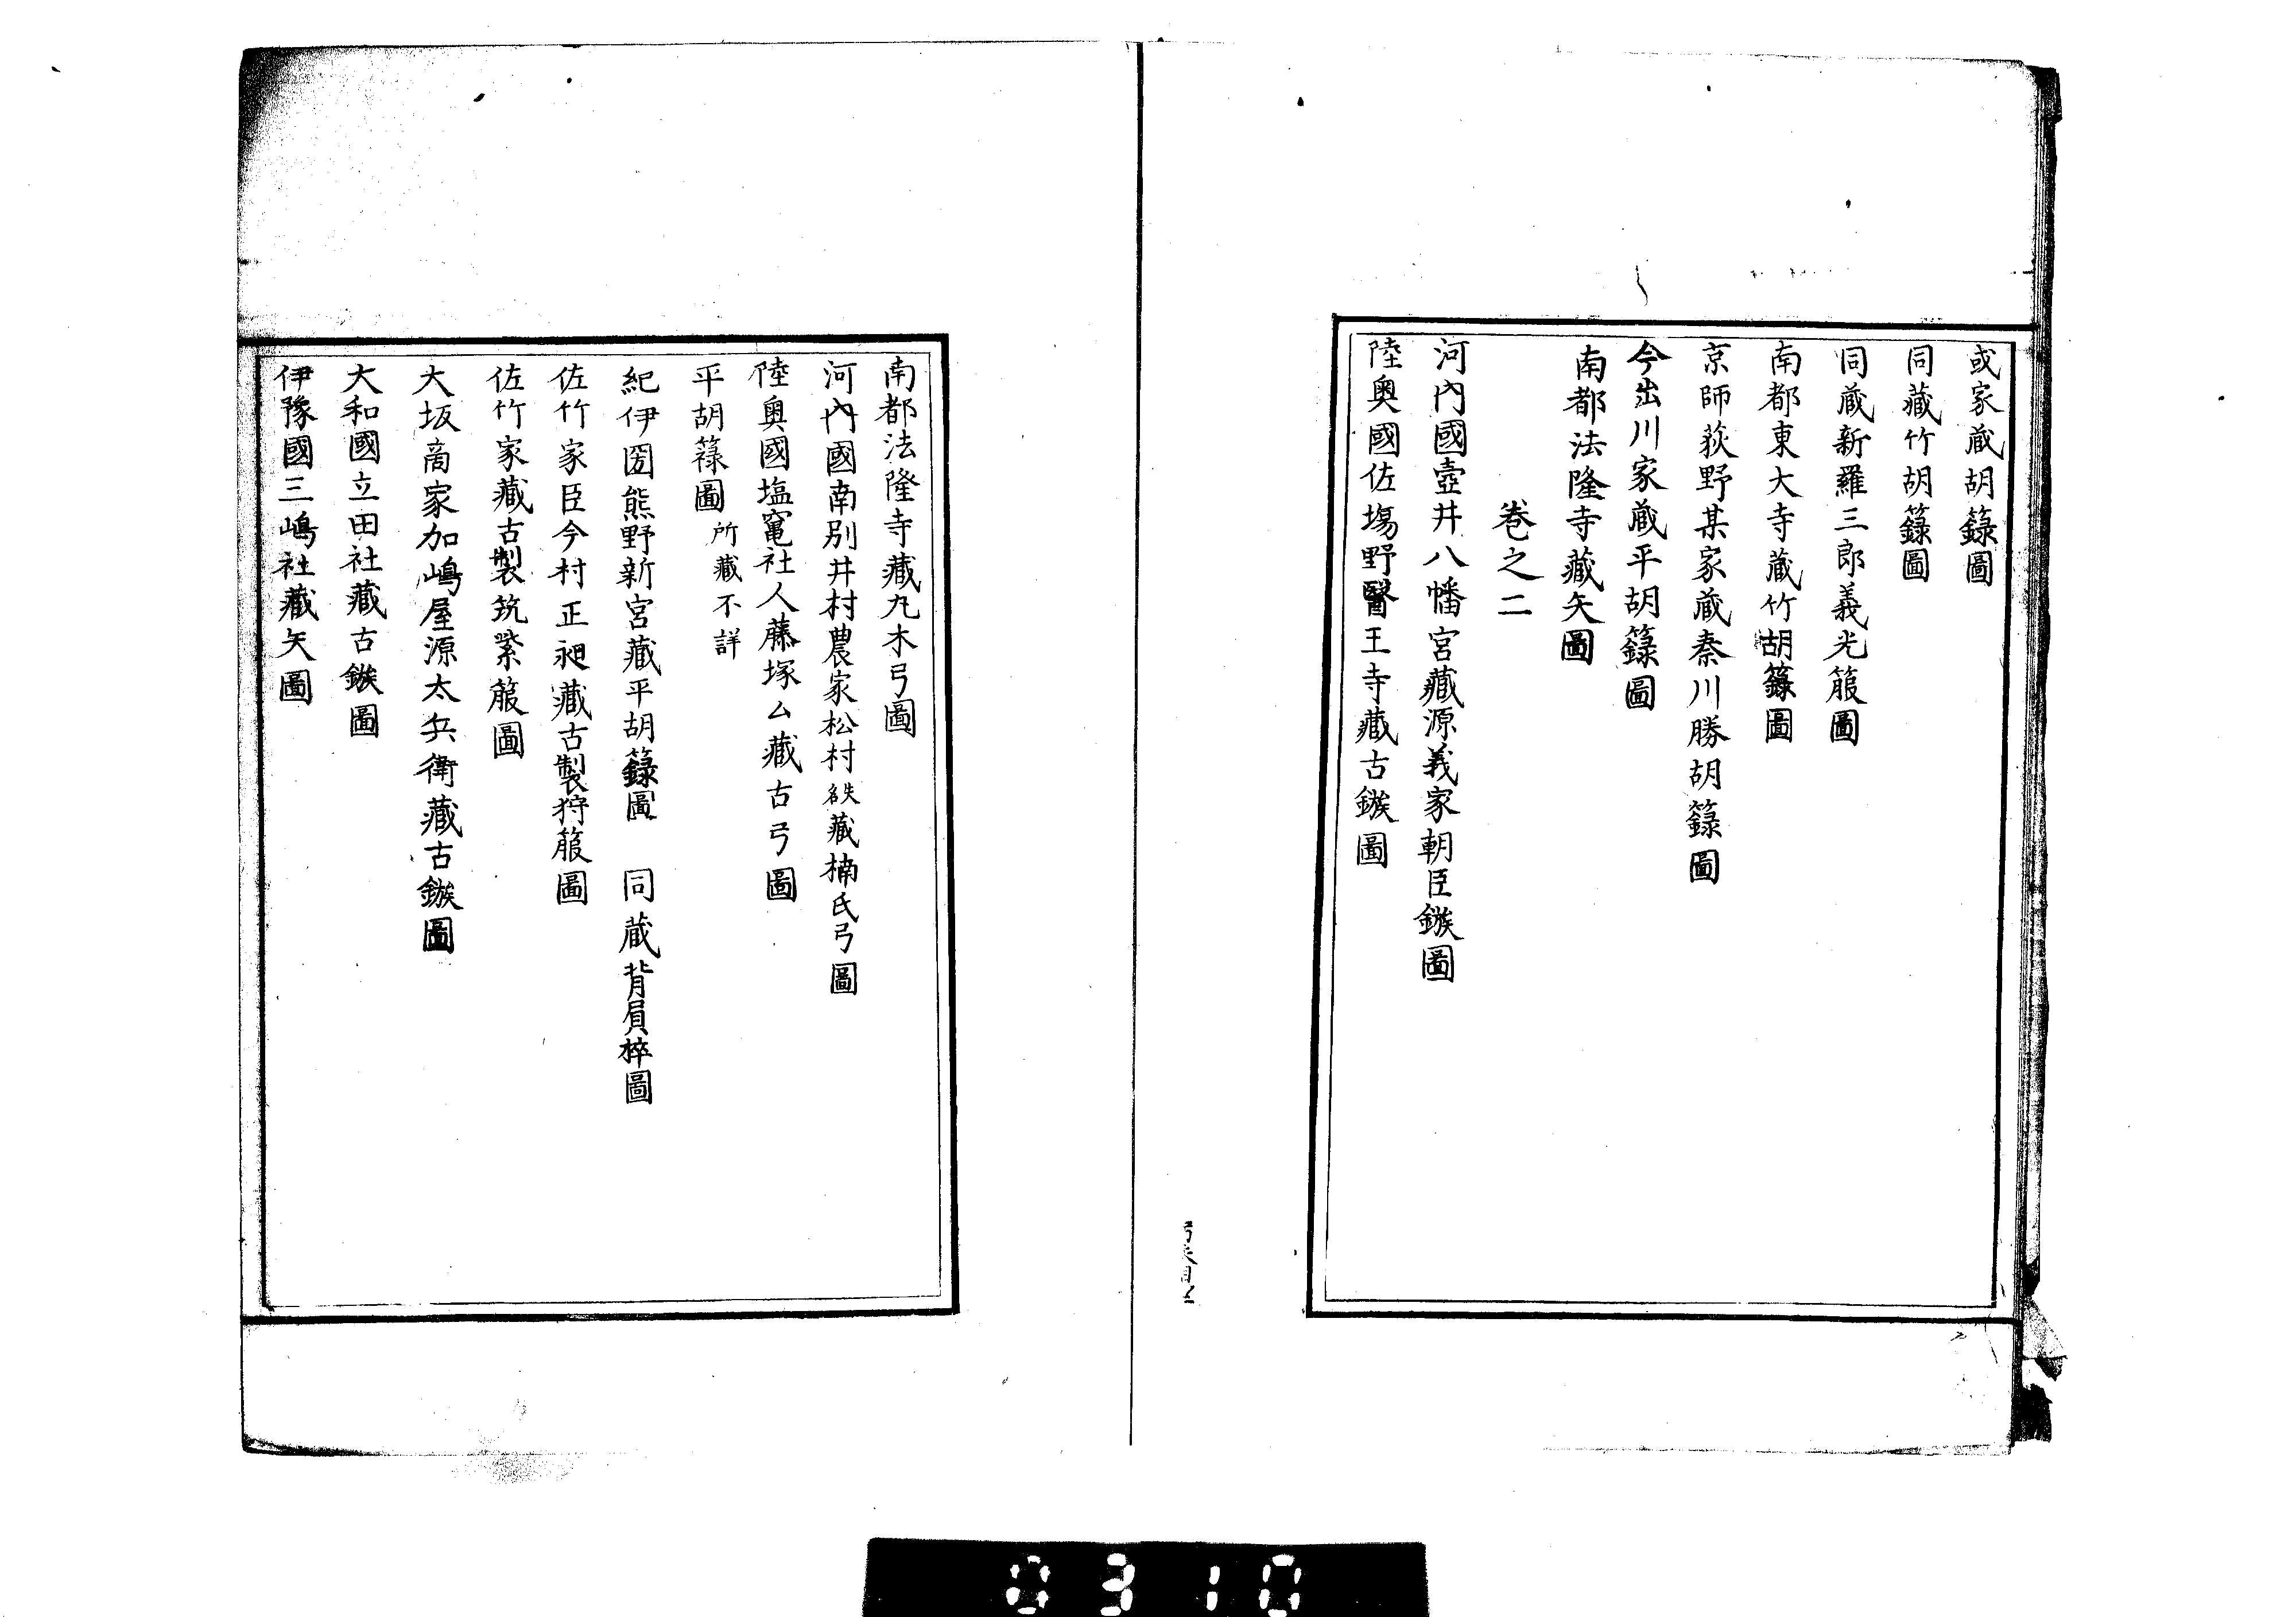 或家蔵胡籙圖
同藏竹胡籙圖
同蔵新羅三郎義光箙圖
南都東大寺蔵竹胡籙圖
京師荻野某家蔵秦川勝胡籙圖
今出川家蔵平胡籙圖
南都法隆寺藏矢圖
巻之二
河內國壺井八幡宮藏源義家朝臣鏃圖
陸奥國佐塲野醫王寺藏古鏃圖
南都法隆寺藏丸木弓圖
河內國南別井村農家松村名失藏楠氏弓圖
陸奥國塩竃社人藤塚厶藏古弓圖
平胡籙圖所藏不詳
紀伊國熊野新宮藏平胡籙圖 同蔵背負桙圖
佐竹家臣今村正昶藏古製狩箙圖
佐竹家藏古製筑紫箙圖
大坂商家加嶋屋源太兵衛藏古鏃圖
大和國立田社藏古鏃圖
伊豫國三嶋社藏矢圖
0310